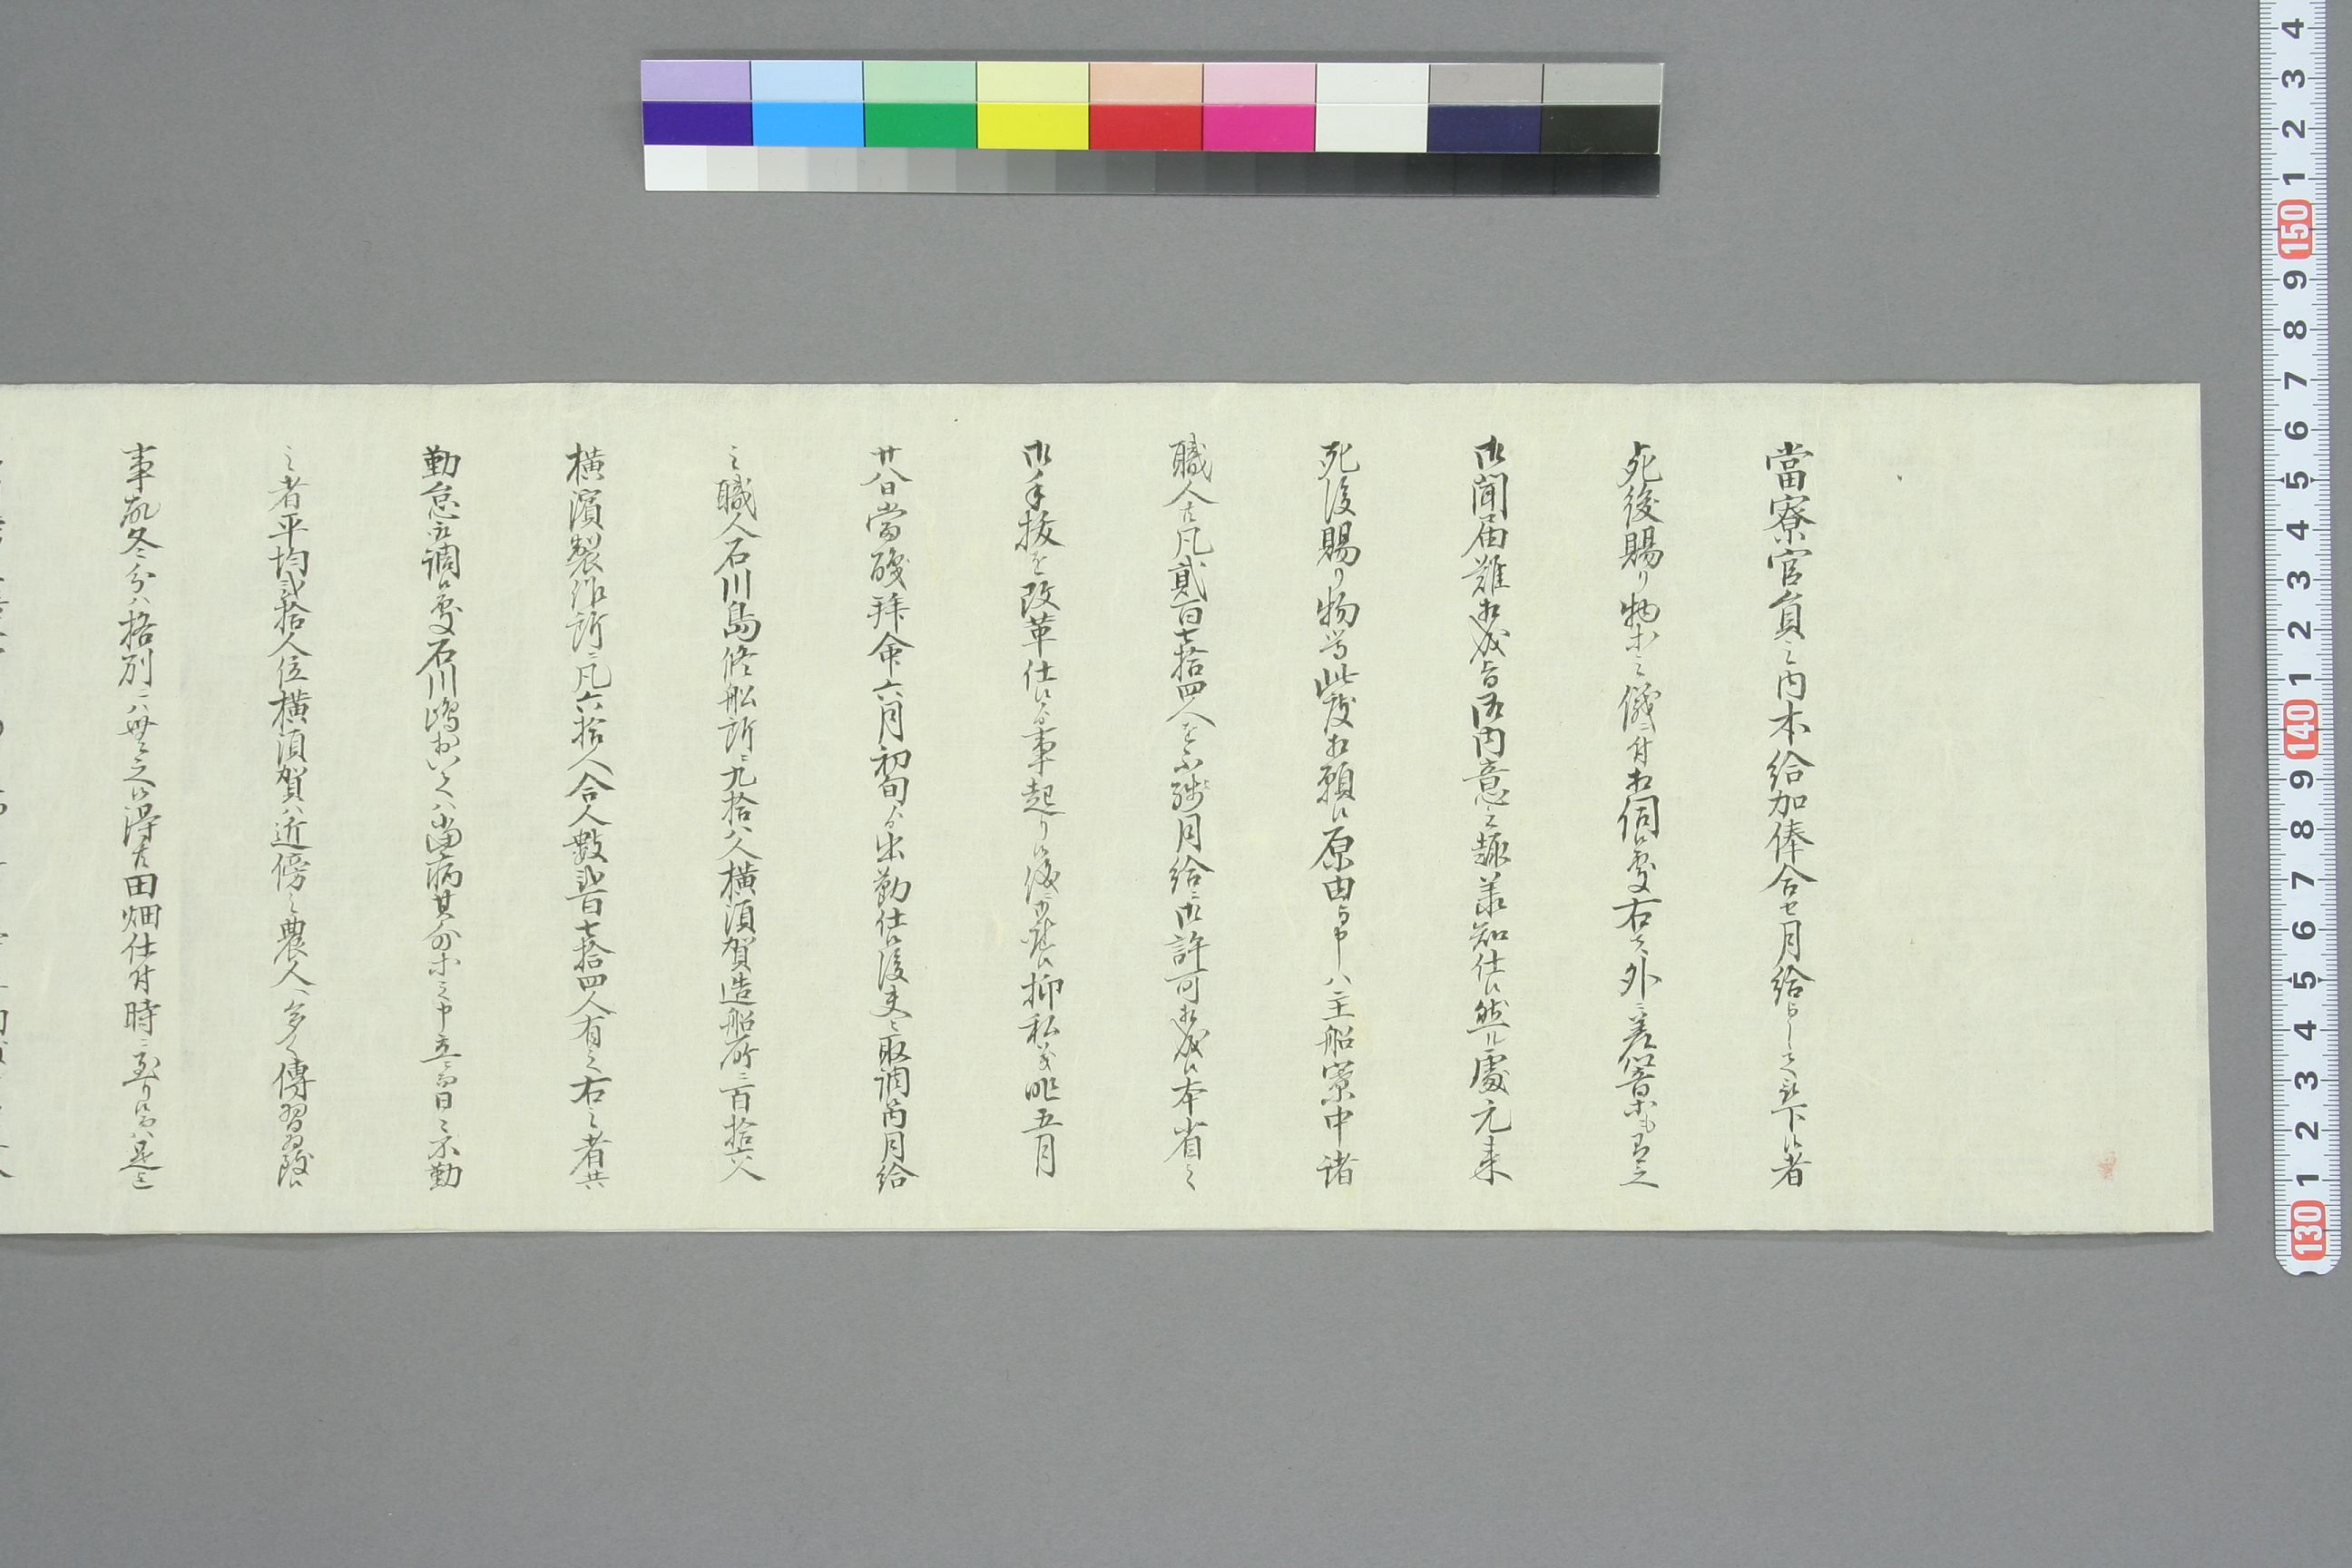 當寮官員之内本給加俸合セ月給として被下候者
死後賜り物等之儀ニ付相伺候處右者外ニ差響等も有之
御聞届難相成旨御内意之趣承知仕候然ル處元来
死後賜り物等此度相願候原由与申ハ主船寮中諸
職人共凡貳百七拾四人を不残月給ニ御許可相成候本省之
御手抜を改革仕候事起り候儀ニ御座候抑私義昨五月
廿八日當職拝命六月初旬ゟ出勤仕候後夫々取調候内月給
之職人石川島修船所ニ九拾八人横須賀造船所ニ百拾六人
横濱製作所ニ凡六拾人合人數貳百七拾四人有之右之者共
勤怠取調候處石川嶋おいてハ當病其外等之申立ニ而日々不勤
之者平均貳拾人位横須賀ハ近傍之農人ハ多く傳習
事故冬分ハ格別ニハ無之候得共田畑仕付時ニ至り候而ハ
4
3
2
1
150
9
8
7
6
5
4
3
2
1
140
9
8
7
6
5
4
3
2
1
130